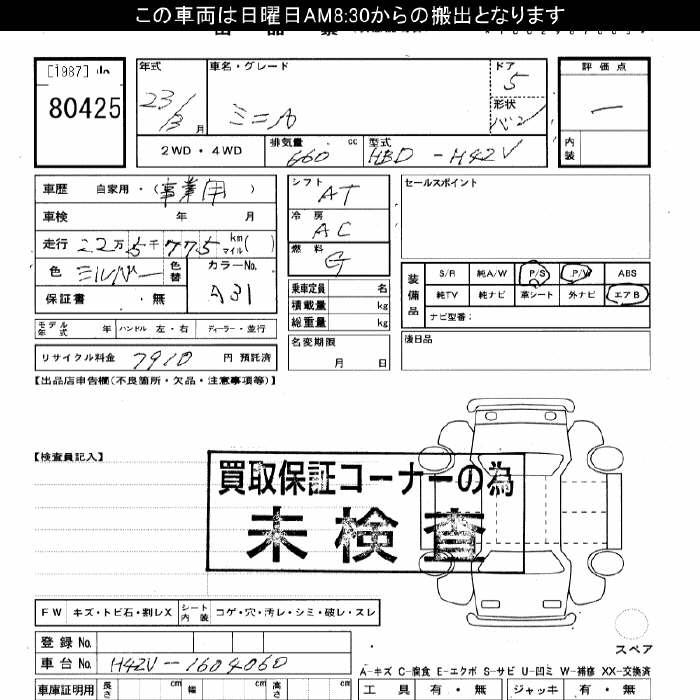 この車両は日曜日AM8:30からの搬出となります
[1987]
80425
年式 23/3月
車名・グレード ミニA
ドア 5
形状 バン
評価点 —
内装
2WD・4WD
排気量 660 cc
型式 HBD-H42V
車歴 自家用・(事業用)
車検 年 月
走行 22万5千775 km マイル( )
色 シルバー 色替
カラーNo. A31
保証書 ・無
モデル年式 年 ハンドル 左・右 ディーラー・並行
リサイクル料金 7910 円 預託済
シフト AT
冷房 AC
燃料 G
乗車定員 名
積載量 kg
総重量 kg
名変期限 月 日
セールスポイント
装備品
S/R 純A/W P/S P/W ABS
純TV 純ナビ 革シート 外ナビ エアB
ナビ型番:
後日品
【出品店申告欄(不良箇所・欠品・注意事項等)】
【検査員記入】
買取保証コーナーの為
未検査
FW キズ・トビ石・割レX シート内装 コゲ・穴・汚レ・シミ・破レ・スレ
登録No.
車台No. H42V-1604060
スペア
A-キズ C-腐食 E-エクボ S-サビ U-凹ミ W-補修 XX-交換済
車庫証明用 長さ cm 幅 cm 高さ cm
工具 有・無 ジャッキ 有・無